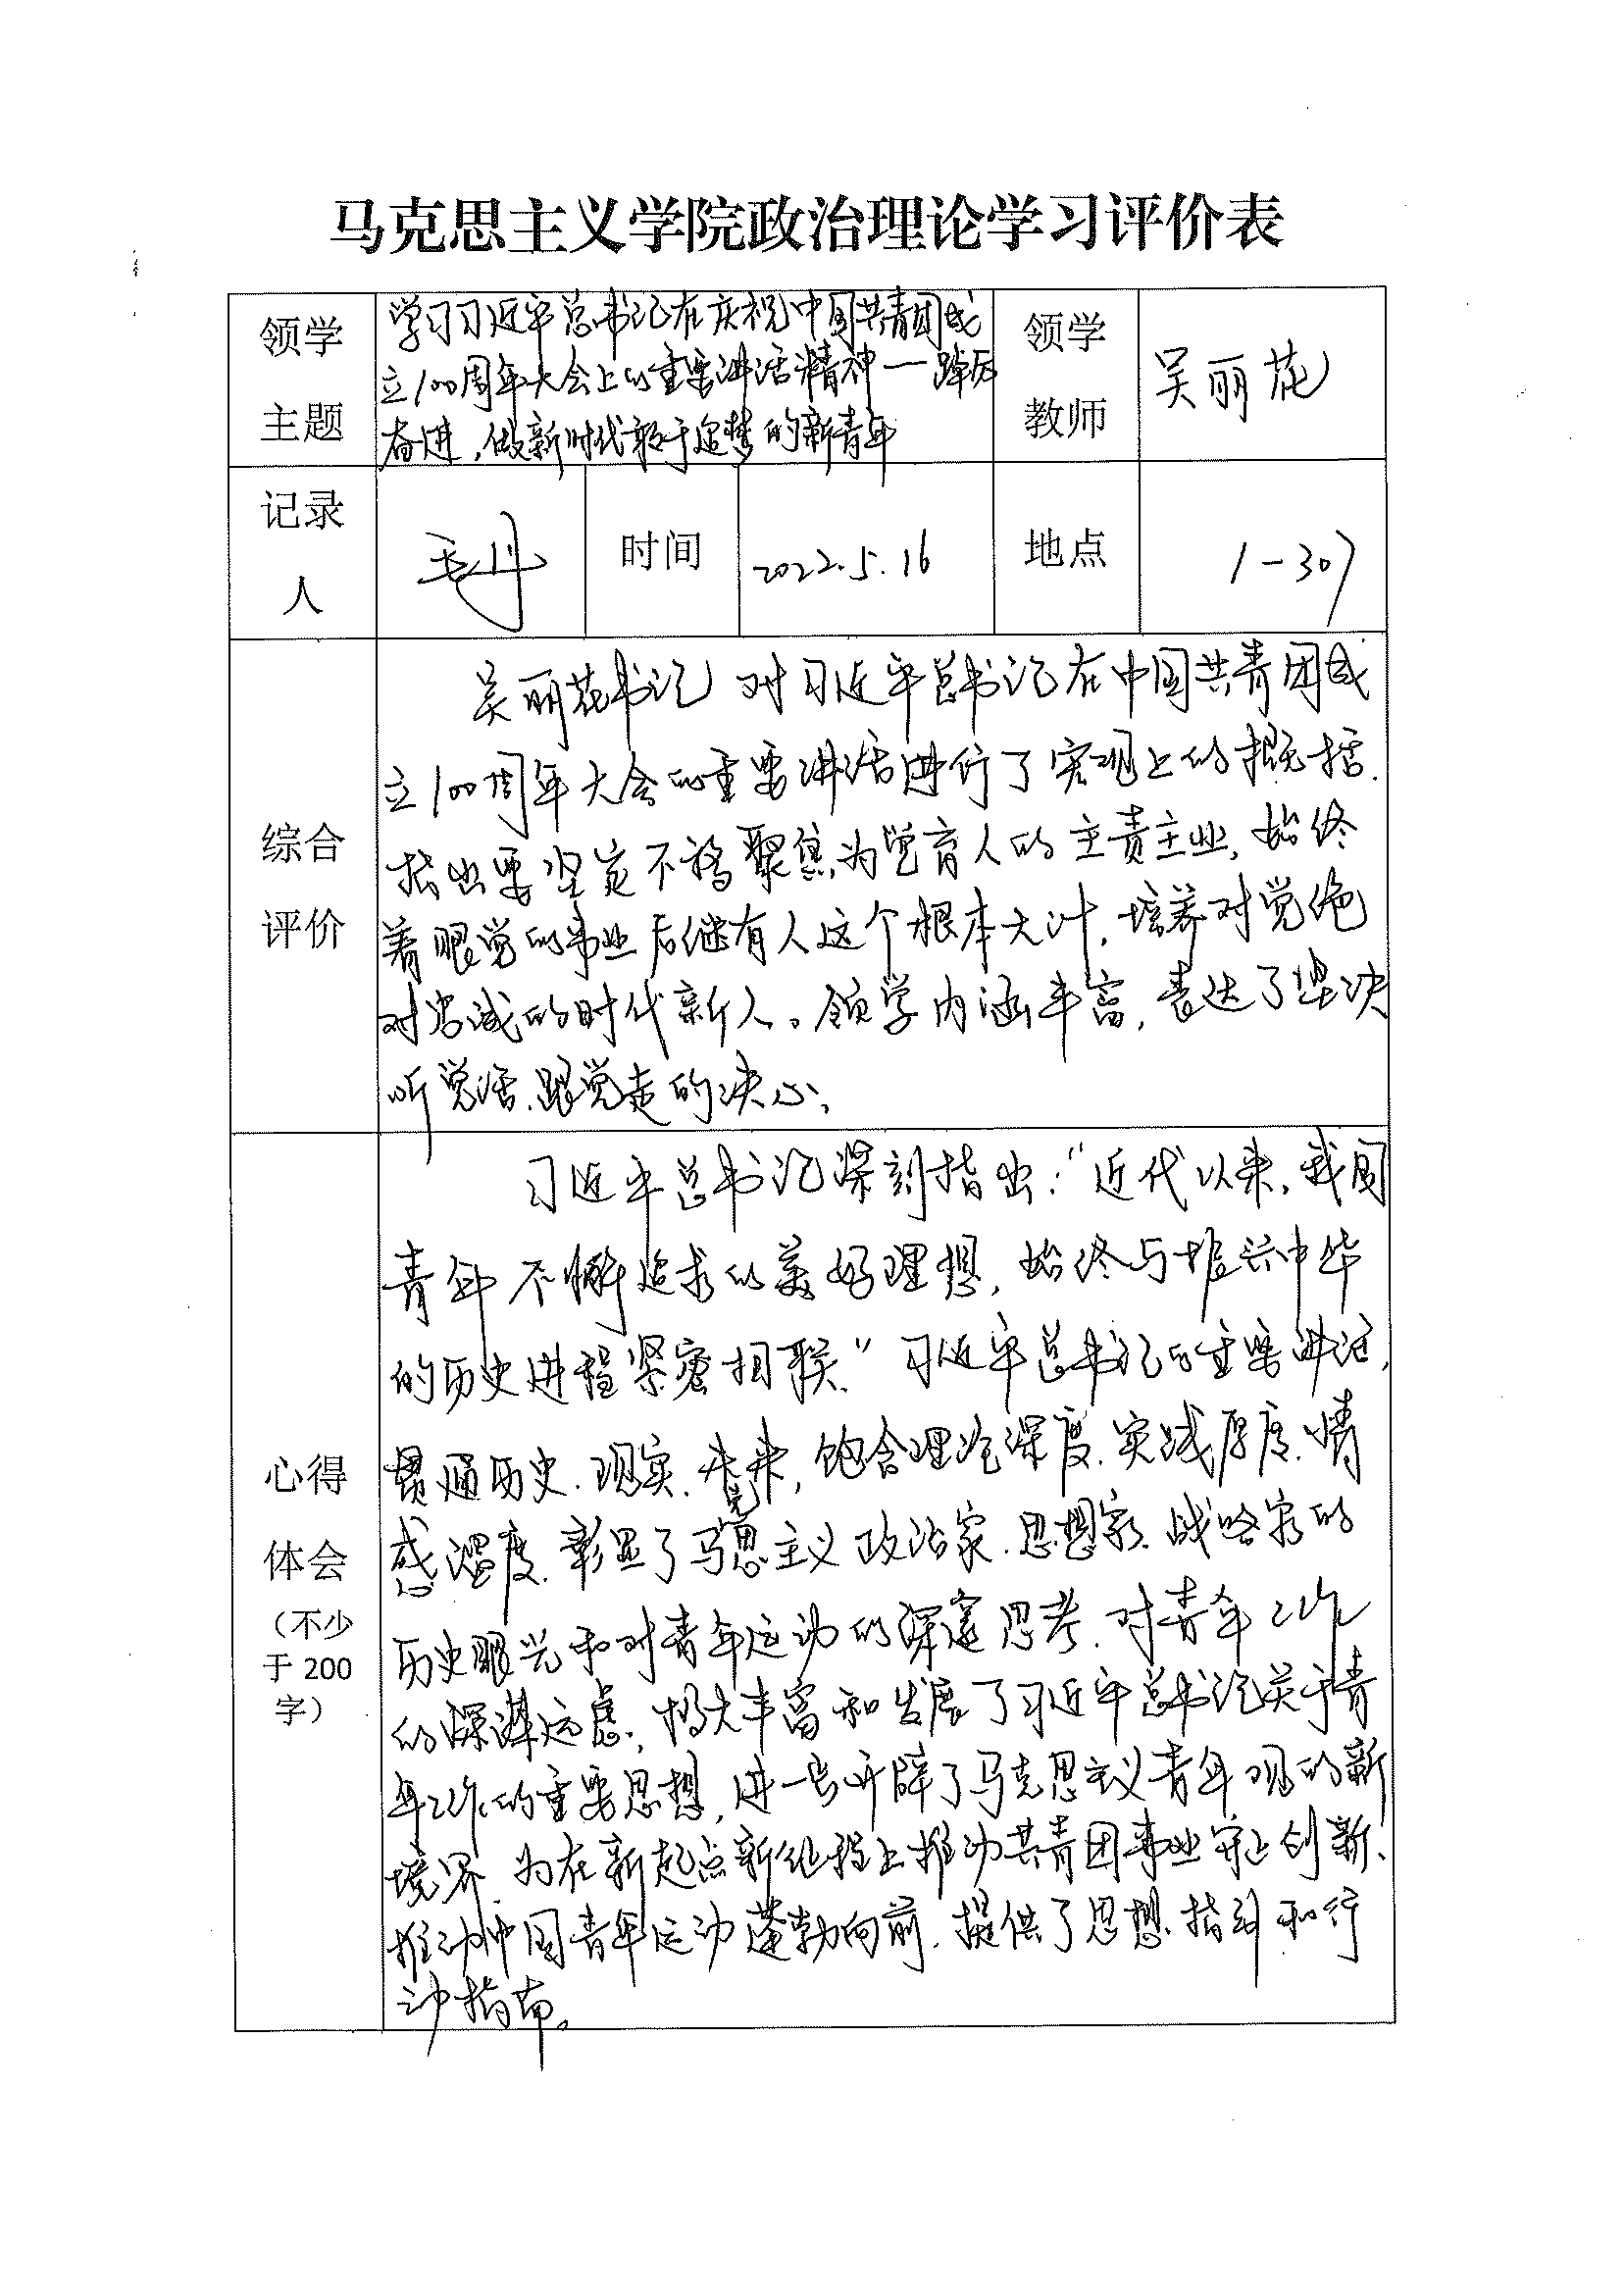 马克思主义学院政治理论学习评价表
领学
主题
学习习近平总书记在庆祝中国共青团成
立100周年大会上的重要讲话精神—踔厉
奋进,做新时代敢于追梦的新青年
领学
教师
吴丽花
记录
人
毛丹
时间
2022.5.16
地点
1-307
综合
评价
吴丽花书记对习近平总书记在中国共青团成
立100周年大会的重要讲话进行了宏观上的概括.
指出要坚定不移聚焦为党育人的主责主业,始终
着眼党的事业后继有人这个根本大计,培养对党绝
对忠诚的时代新人。领学内涵丰富,表达了坚决
听党话、跟党走的决心.
心得
体会
(不少
于 200
字)
习近平总书记深刻指出:“近代以来,我国
青年不懈追求的美好理想,始终与振兴中华
的历史进程紧密相联.”习近平总书记的重要讲话,
贯通历史、现实、未来,饱含理论深度、实践厚度、情
感温度、彰显了马克思主义政治家、思想家、战略家的
历史眼光和对青年运动的深邃思考、对青年工作
的深谋远虑,极大丰富和发展了习近平总书记关于青
年工作的重要思想,进一步开辟了马克思主义青年观的新
境界、为在新起点新征程上推动共青团事业守正创新、
推动中国青年运动蓬勃向前、提供了思想指引和行
动指南。